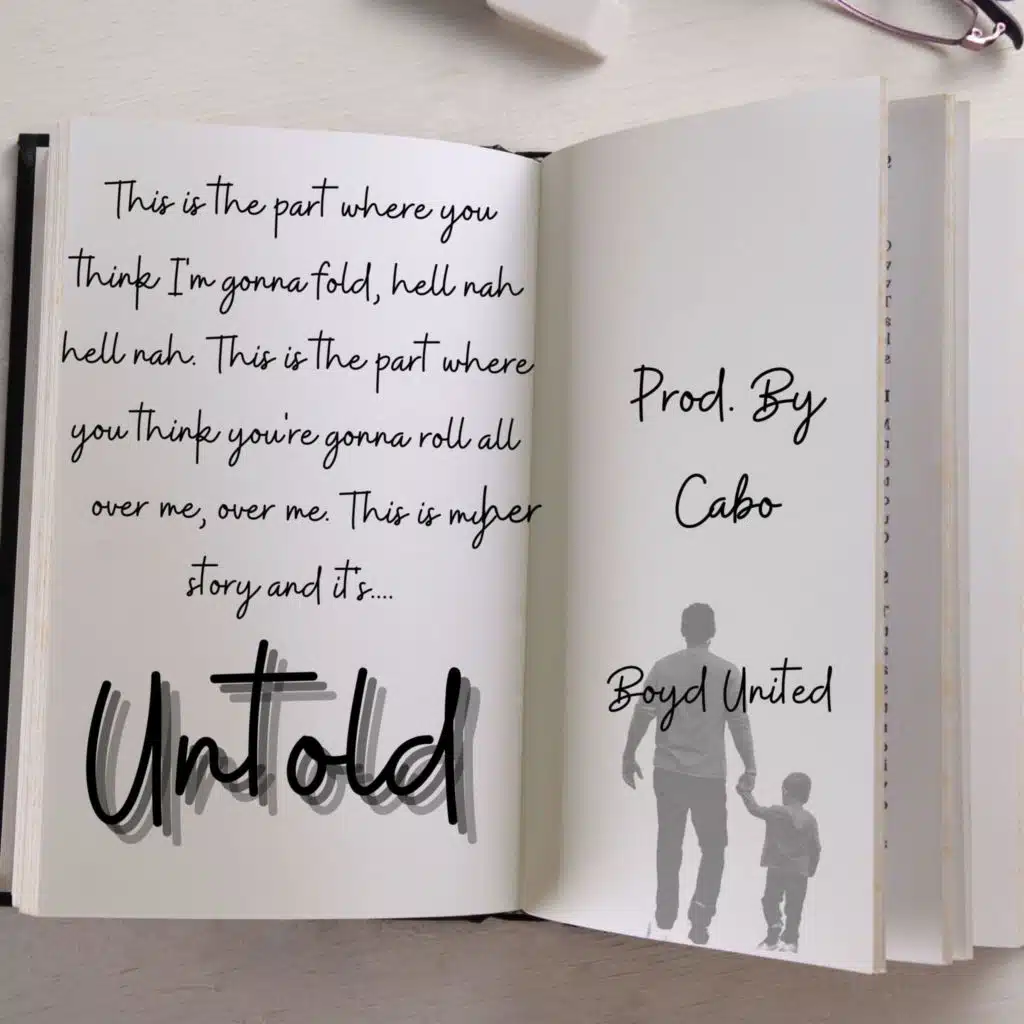 This is the part where you
think I'm gonna fold, hell nah
hell nah. This is the part where
you think you're gonna roll all
over me, over me. This is
story and it's....
Untold
Prod. By
Cabo
Boyd United